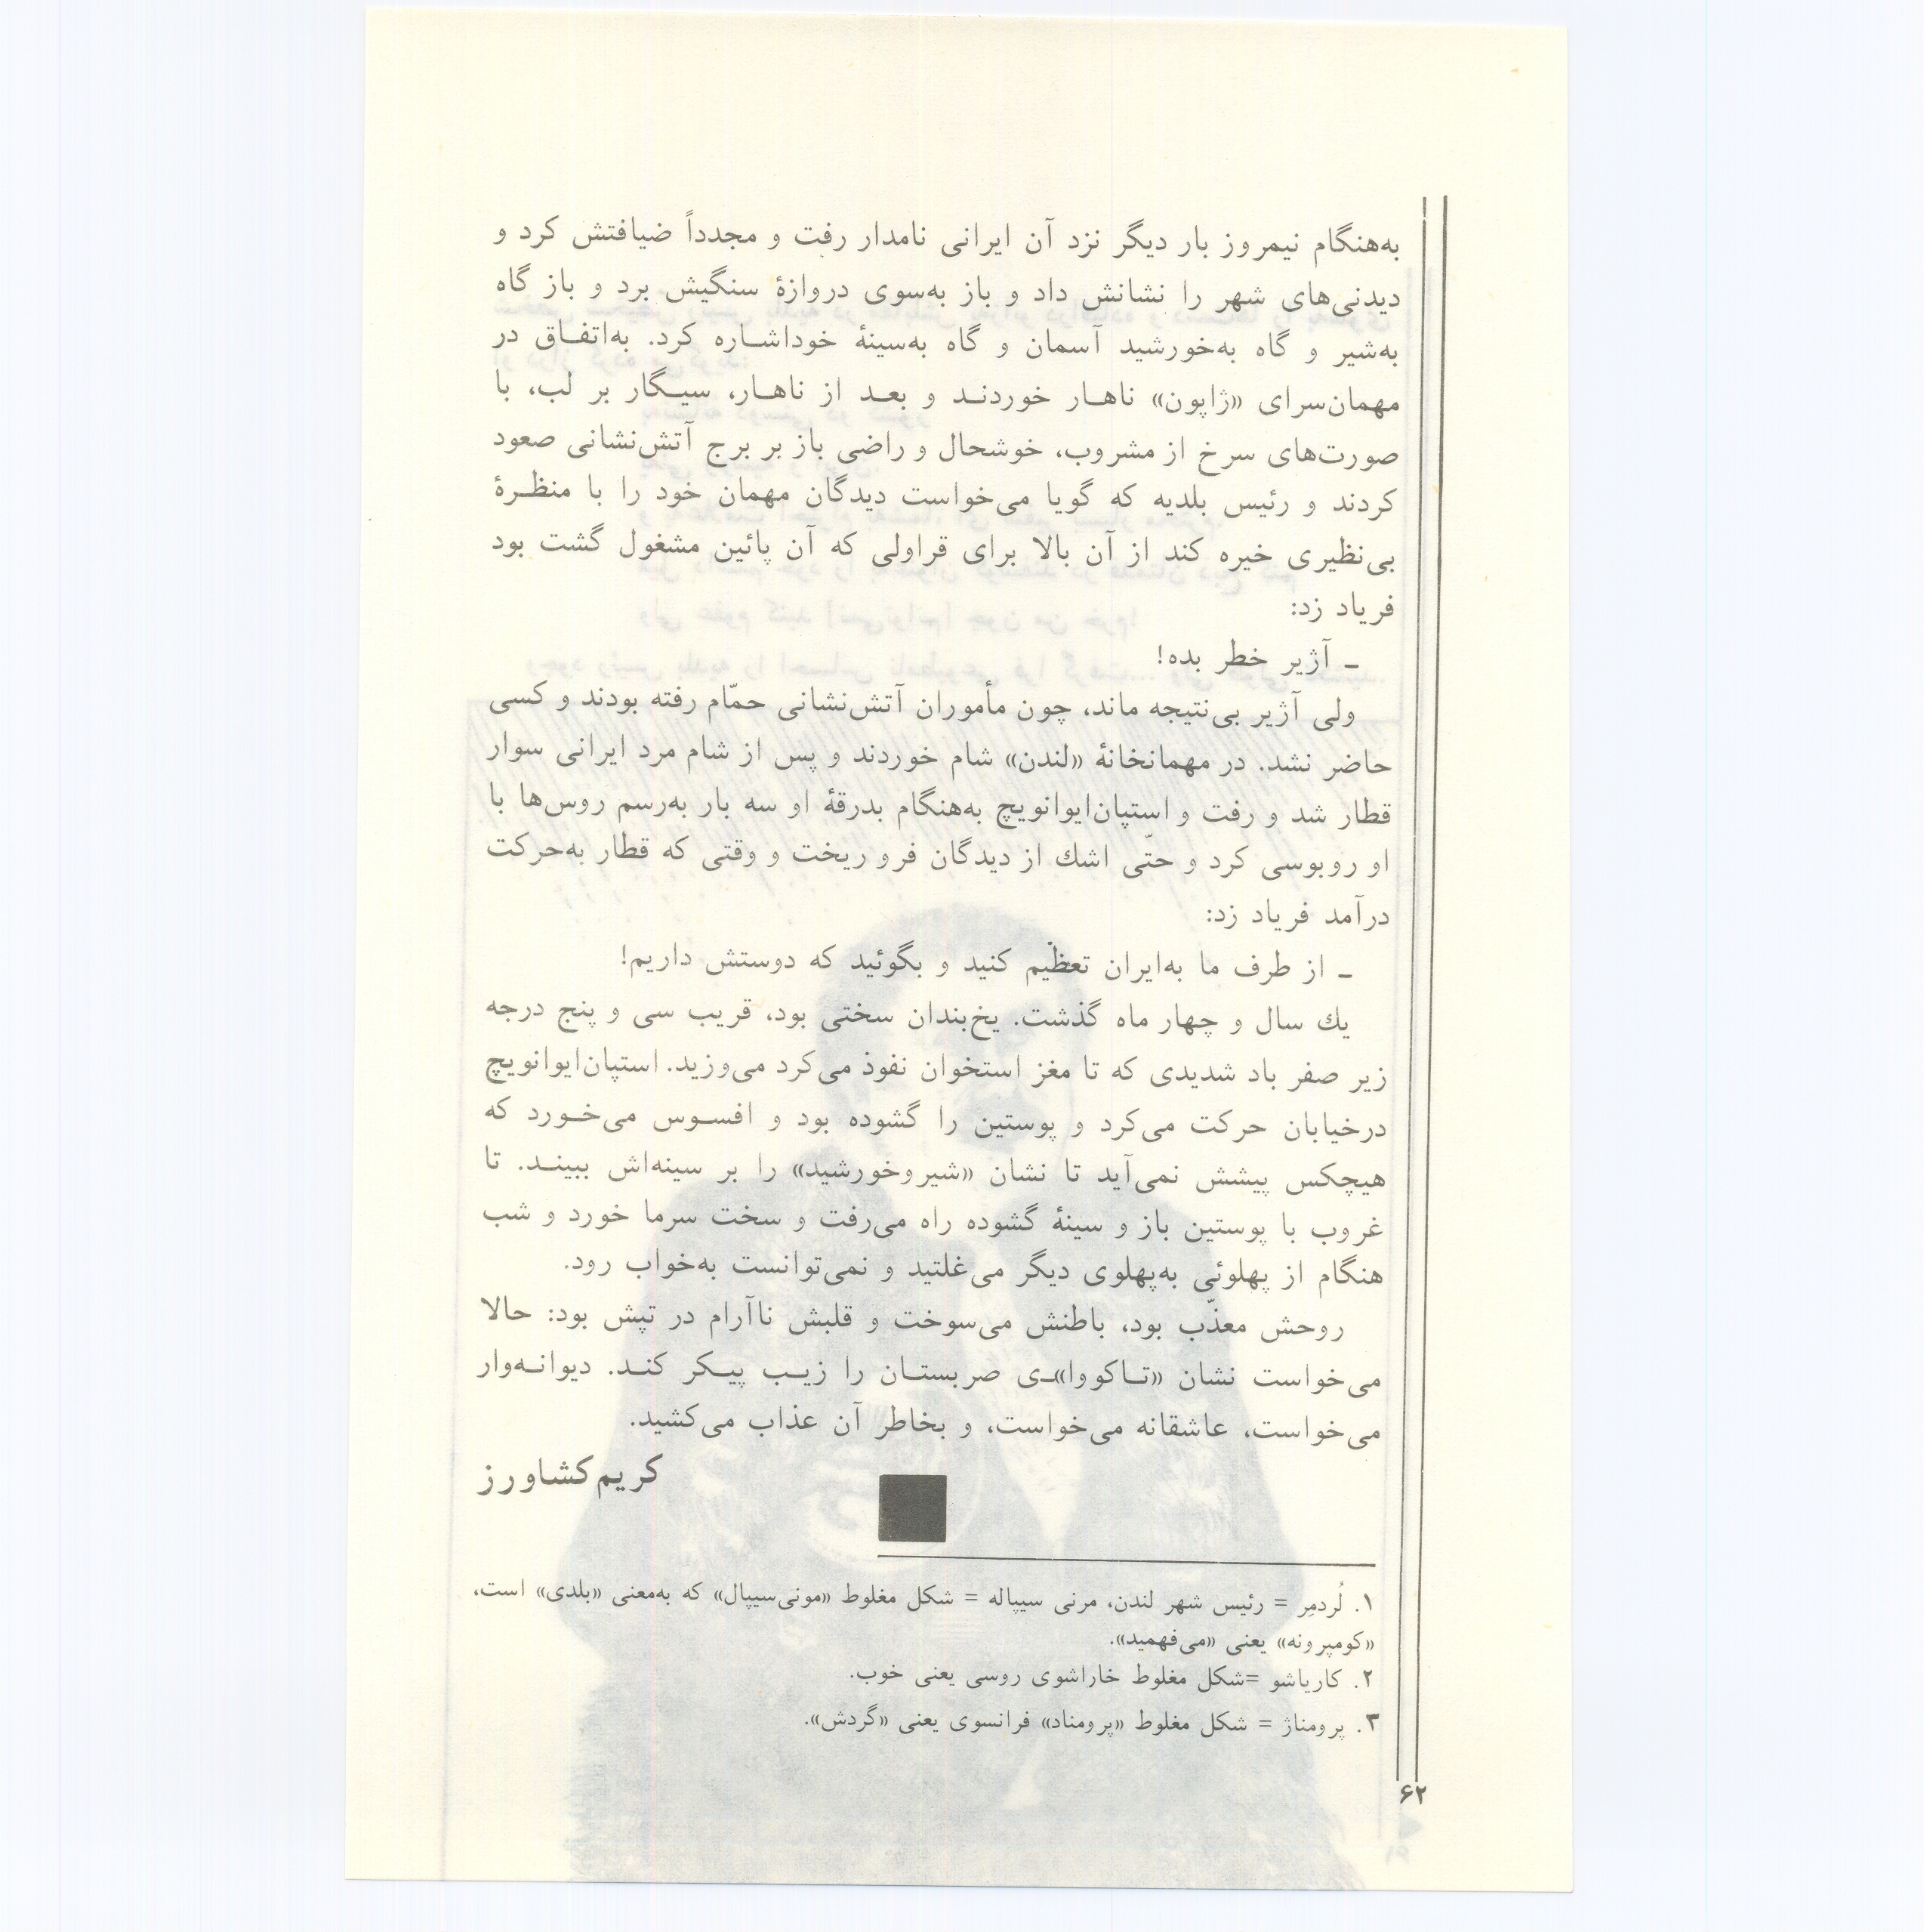 به‌هنگام نیمروز بار دیگر نزد آن ایرانی نامدار رفت و مجدداً ضیافتش کرد و
دیدنی‌های شهر را نشانش داد و باز به‌سوی دروازهٔ سنگیش برد و باز گاه
به‌شیر و گاه به‌خورشید آسمان و گاه به‌سینهٔ خوداشاره کرد. به‌اتفاق در
مهمان‌سرای «ژاپون» ناهار خوردند و بعد از ناهار، سیگار بر لب، با
صورت‌های سرخ از مشروب، خوشحال و راضی باز بر برج آتش‌نشانی صعود
کردند و رئیس بلدیه که گویا می‌خواست دیدگان مهمان خود را با منظرهٔ
بی‌نظیری خیره کند از آن بالا برای قراولی که آن پائین مشغول گشت بود
فریاد زد:
ـ آژیر خطر بده!
ولی آژیر بی‌نتیجه ماند، چون مأموران آتش‌نشانی حمّام رفته بودند و کسی
حاضر نشد. در مهمانخانهٔ «لندن» شام خوردند و پس از شام مرد ایرانی سوار
قطار شد و رفت و استپان‌ایوانویچ به‌هنگام بدرقهٔ او سه بار به‌رسم روس‌ها با
او روبوسی کرد و حتّی اشك از دیدگان فرو ریخت و وقتی که قطار به‌حرکت
درآمد فریاد زد:
ـ از طرف ما به‌ایران تعظیم کنید و بگوئید که دوستش داریم!
یك سال و چهار ماه گذشت. یخ‌بندان سختی بود، قریب سی و پنج درجه
زیر صفر باد شدیدی که تا مغز استخوان نفوذ می‌کرد می‌وزید. استپان‌ایوانویچ
درخیابان حرکت می‌کرد و پوستین را گشوده بود و افسوس می‌خورد که
هیچکس پیشش نمی‌آید تا نشان «شیروخورشید» را بر سینه‌اش ببیند. تا
غروب با پوستین باز و سینهٔ گشوده راه می‌رفت و سخت سرما خورد و شب
هنگام از پهلوئی به‌پهلوی دیگر می‌غلتید و نمی‌توانست به‌خواب رود.
روحش معذّب بود، باطنش می‌سوخت و قلبش ناآرام در تپش بود: حالا
می‌خواست نشان «تاکووا»ـی صربستان را زیب پیکر کند. دیوانه‌وار
می‌خواست، عاشقانه می‌خواست، و بخاطر آن عذاب می‌کشید.
کریم کشاورز
۱. لُردمِر = رئیس شهر لندن، مرنی سیپاله = شکل مغلوط «مونی‌سیپال» که به‌معنی «بلدی» است،
«کومپرونه» یعنی «می‌فهمید».
۲. کاریاشو =شکل مغلوط خاراشوی روسی یعنی خوب.
۳. پرومناژ = شکل مغلوط «پرومناد» فرانسوی یعنی «گردش».
۶۲